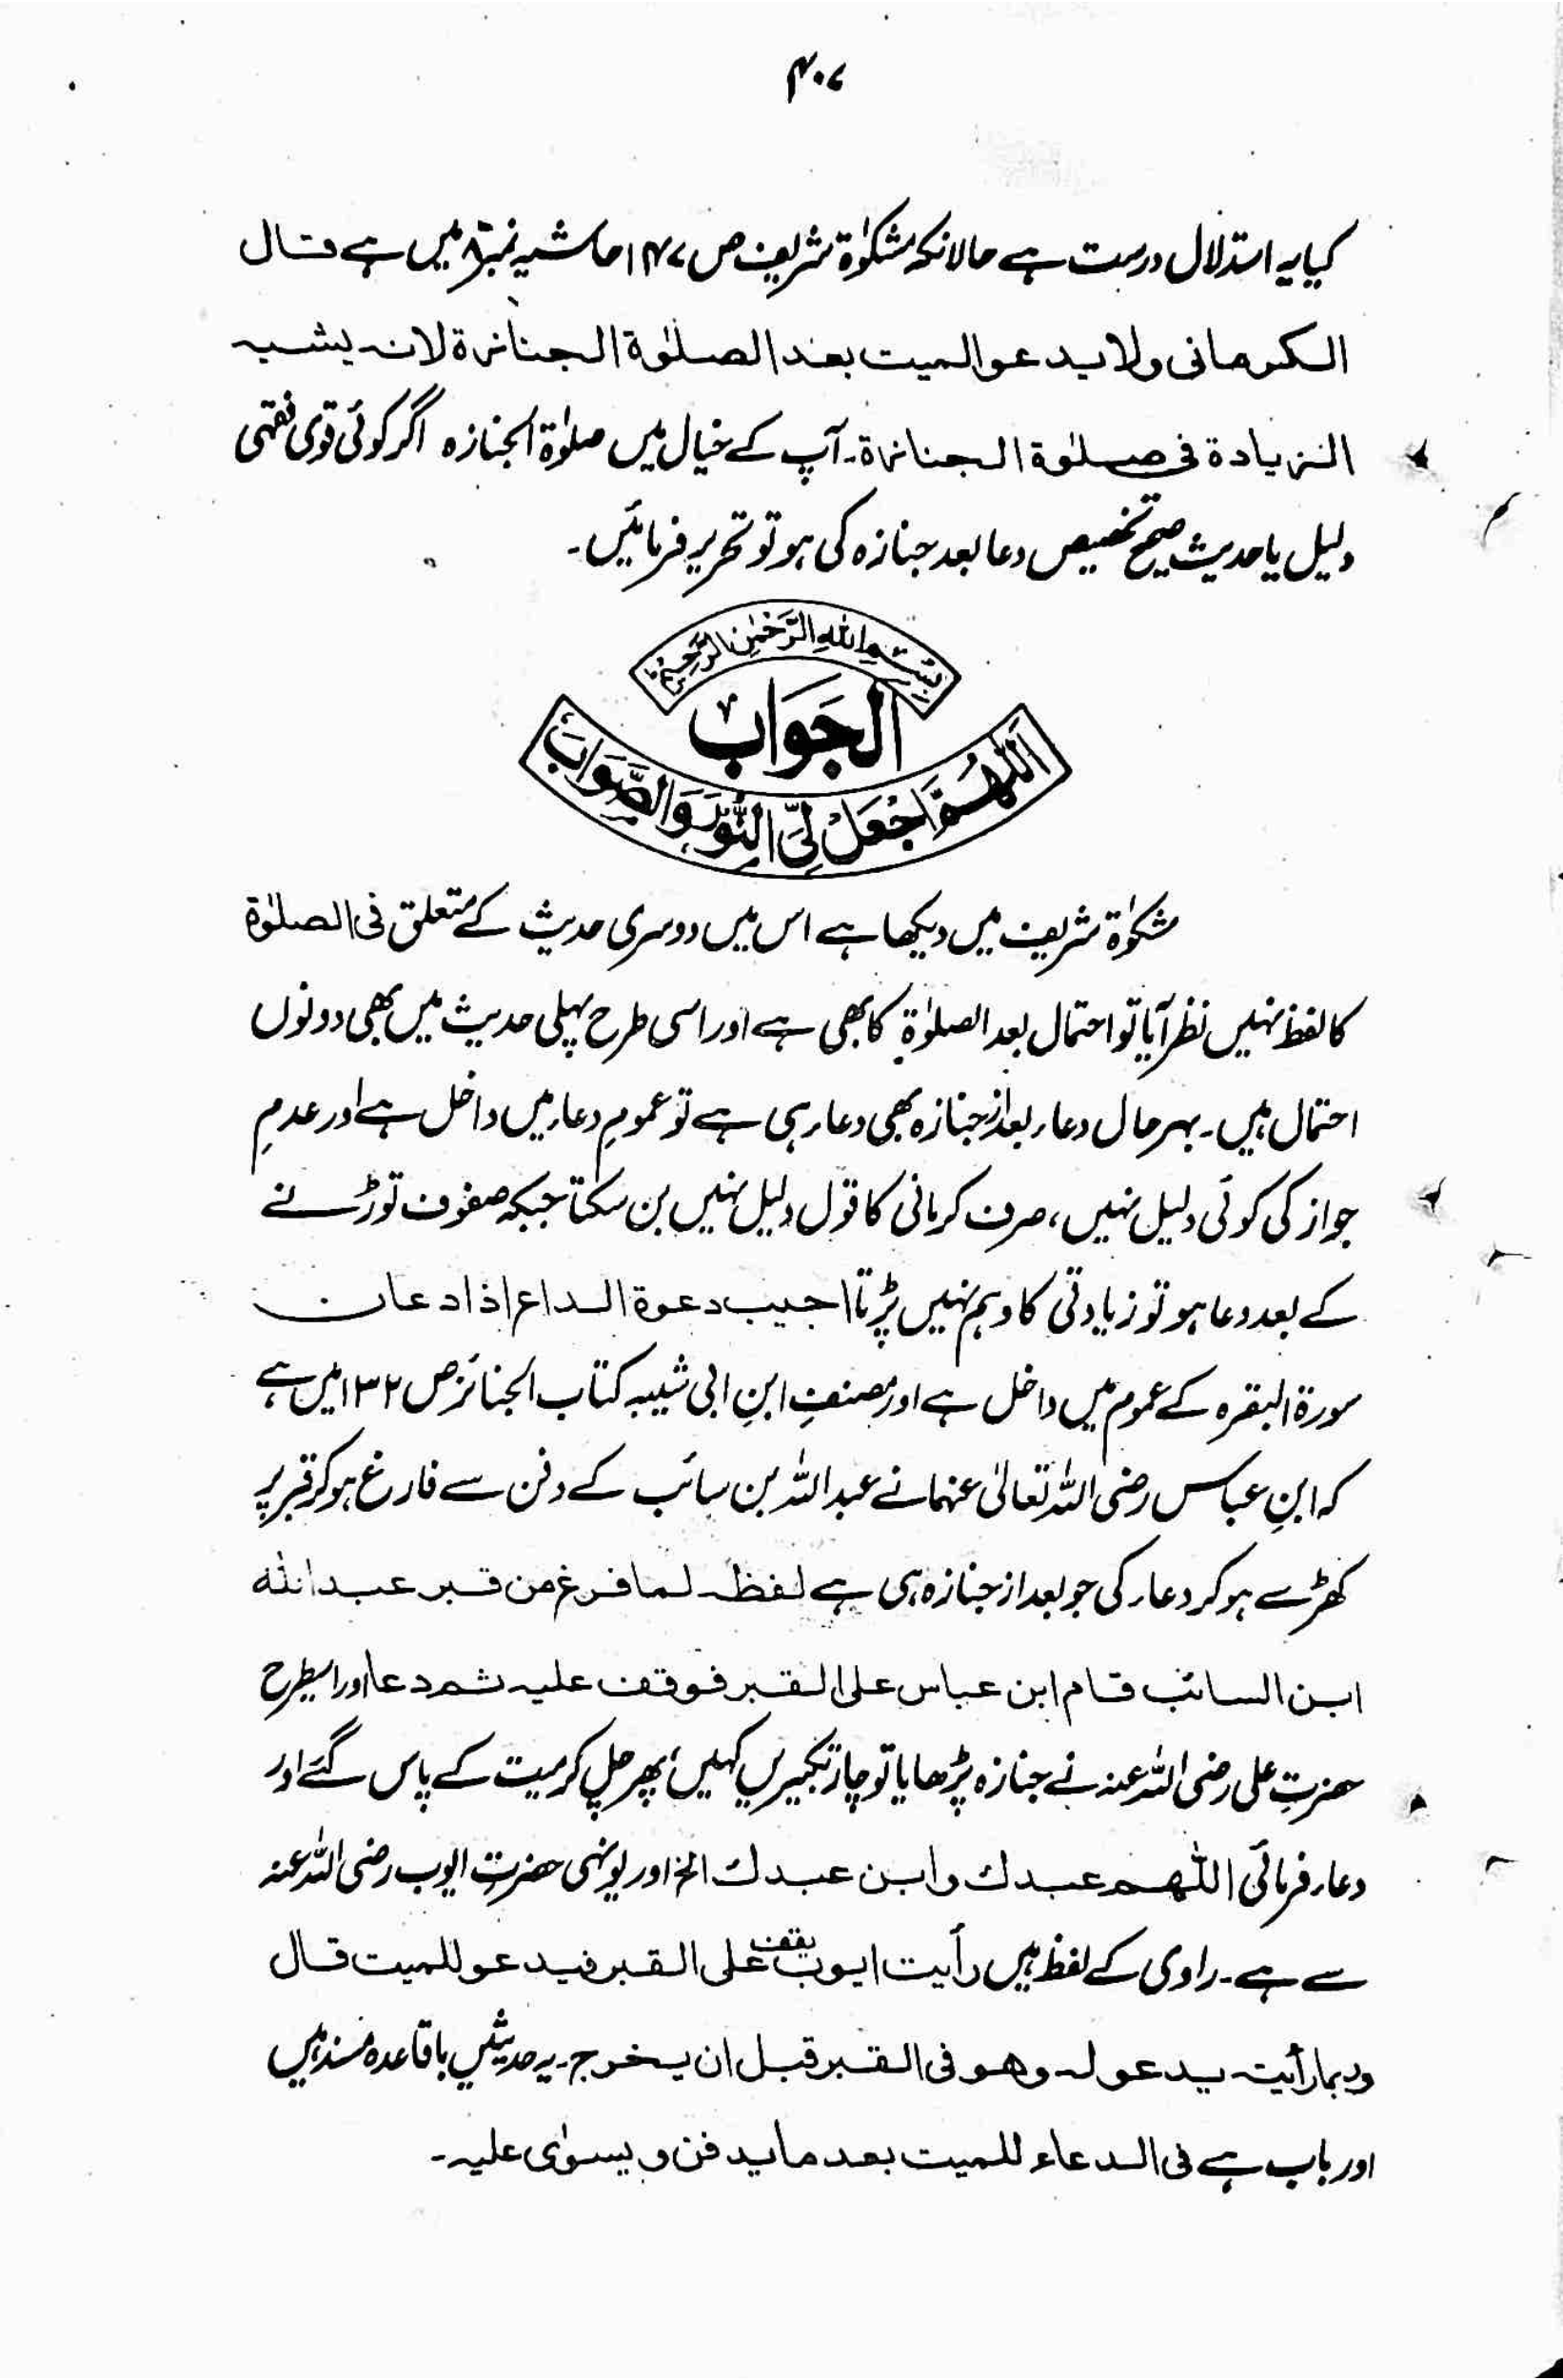 ۴۰۷
کیا یہ استدلال درست ہے حالانکہ مشکوٰۃ شریف ص ۱۴۷ حاشیہ نمبر ۸ میں ہے قال
الکرمانی ولا یدعو المیت بعد الصلوٰۃ الجنازۃ لانہ یشبہ
الزیادۃ فی صلوٰۃ الجنازۃ۔ آپ کے خیال میں صلوٰۃ الجنازہ اگر کوئی قوی فقہی
دلیل یا حدیث صحیح تخصیص دعا بعد جنازہ کی ہو تو تحریر فرمائیں۔
بِسْمِ اللہِ الرَّحْمٰنِ الرَّحِیْمِ
الجَوَابُ
اَللّٰهُمَّ اجْعَلْ لِیَ النُّوْرَ وَالصَّوَابَ
مشکوٰۃ شریف میں دیکھا ہے اس میں دوسری حدیث کے متعلق فی الصلوٰۃ
کا لفظ نہیں نظر آیا تو احتمال بعد الصلوٰۃ کا بھی ہے اور اسی طرح پہلی حدیث میں بھی دونوں
احتمال ہیں۔ بہرحال دعاء بعد از جنازہ بھی دعاء ہی ہے تو عمومِ دعاء میں داخل ہے اور عدمِ
جواز کی کوئی دلیل نہیں، صرف کرمانی کا قول دلیل نہیں بن سکتا جبکہ صفوف توڑنے
کے بعد دعا ہو تو زیادتی کا وہم نہیں پڑتا اجیب دعوۃ الداع اذا دعان
سورۃ البقرہ کے عموم میں داخل ہے اور مصنفِ ابنِ ابی شیبہ کتاب الجنائز ص ۱۳۲ میں ہے
کہ ابنِ عباس رضی اللہ تعالیٰ عنہما نے عبداللہ بن سائب کے دفن سے فارغ ہو کر قبر پر
کھڑے ہو کر دعاء کی جو بعد از جنازہ ہی ہے لفظہ لما فرغ من قبر عبداللہ
ابن السائب قام ابن عباس علی القبر فوقف علیہ ثم دعا اور اسیطرح
حضرتِ علی رضی اللہ عنہ نے جنازہ پڑھایا تو چار تکبیریں کہیں، پھر چل کر میت کے پاس گئے اور
دعاء فرمائی اللّٰھم عبدك وابن عبدك الخ اور یونہی حضرتِ ایوب رضی اللہ عنہ
سے ہے۔ راوی کے لفظ ہیں رأیت ایوب یقف علی القبر فیدعو للمیت قال
وربما رأیتہ یدعو لہ وھو فی القبر قبل ان یخرج۔ یہ حدیثیں باقاعدہ مسند ہیں
اور باب ہے فی الدعاء للمیت بعد ما یدفن و یسوٰی علیہ۔